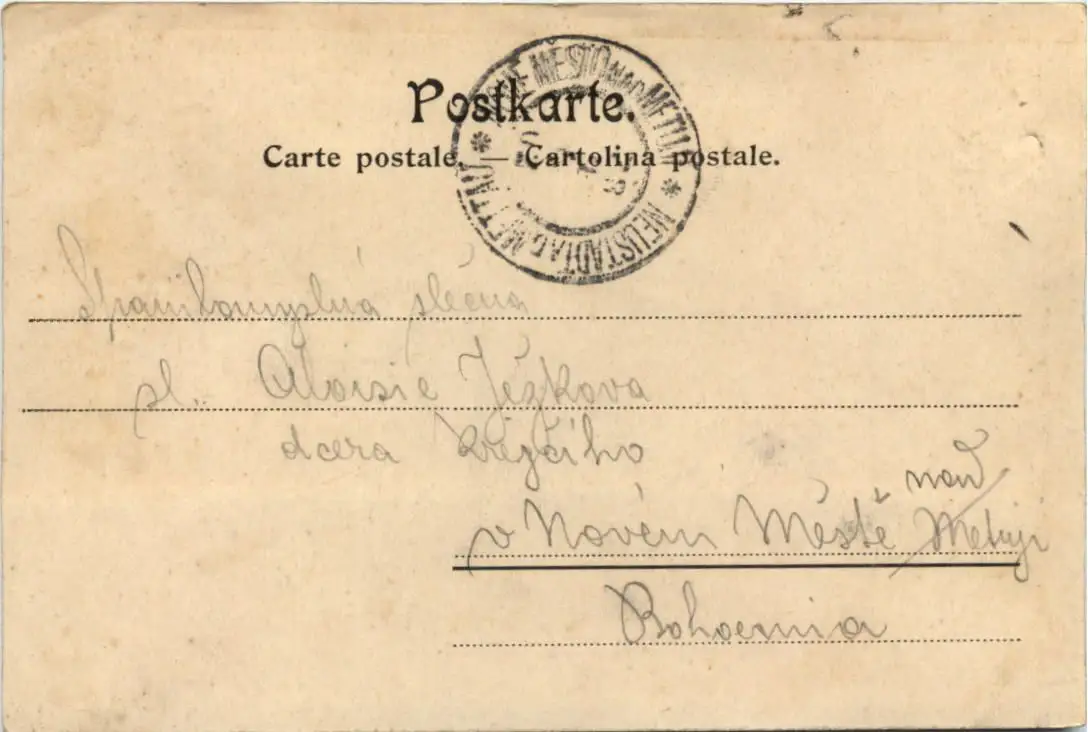 Postkarte.
Carte postale. — Cartolina postale.
NOVÉ MĚSTO NAD METUJÍ * NEUSTADT A. D. METTAU *
slečna
sl. Aloisie Ježkova
dcera krejčiho
v Novém Městě nad Metuji
Bohoemia